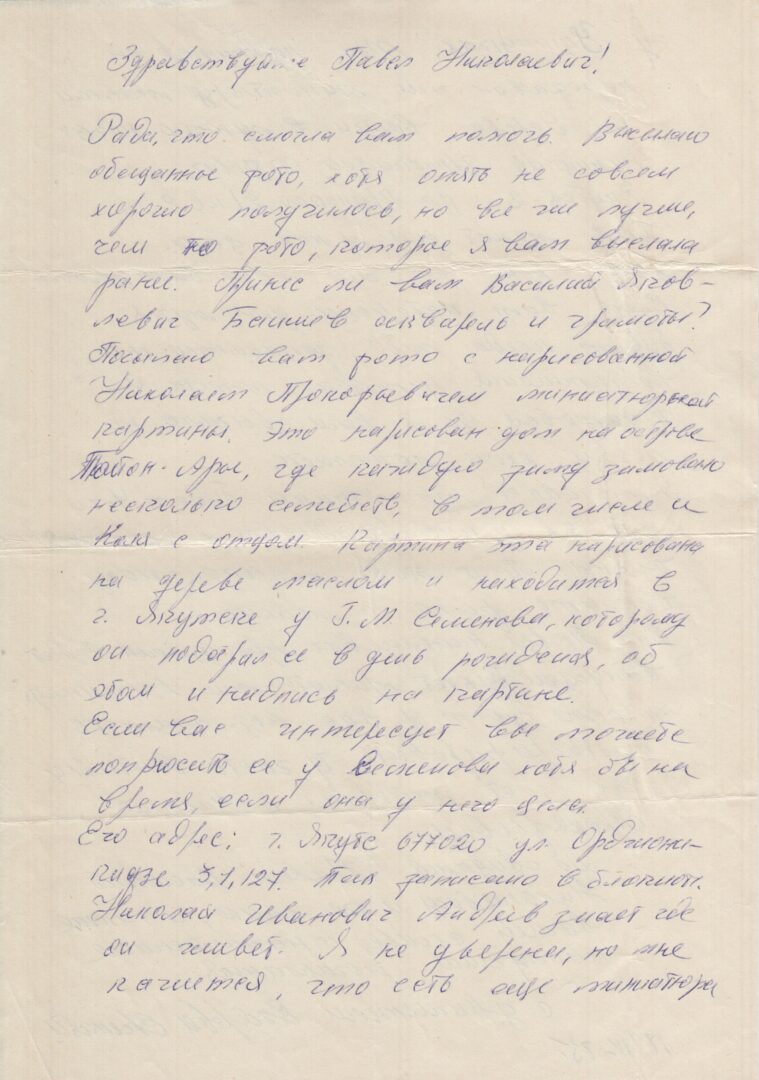 Здравствуйте Павел Николаевич!
Рада, что смогла вам помочь. Высылаю
обещанные фото, хотя опять не совсем
хорошо получилось, но все же лучше,
чем то фото, которое я вам выслала
ранее. Принес ли вам Василий Яков-
левич Баишев акварель и грамоты?
Посылаю вам фото с нарисованной
Николаем Прокопьевичем миниатюрной
картины. Это нарисован дом на острове
Тойон-Ары, где каждую зиму зимовало
несколько семейств, в том числе и
Коля с отцом. Картина эта нарисована
на дереве маслом и находится в
г. Якутске у Г. М Семенова, которому
он подарил ее в день рождения, об
этом и надпись на картине.
Если вас интересует вы можете
попросить ее у Семенова хотя бы на
время, если она у него цела.
Его адрес: г. Якутс 677020 ул. Орджони-
кидзе 3,1,127. Так записано в блокноте.
Николай Иванович Андреев знает где
он живет. Я не уверена, но мне
кажется, что есть еще миниатюра